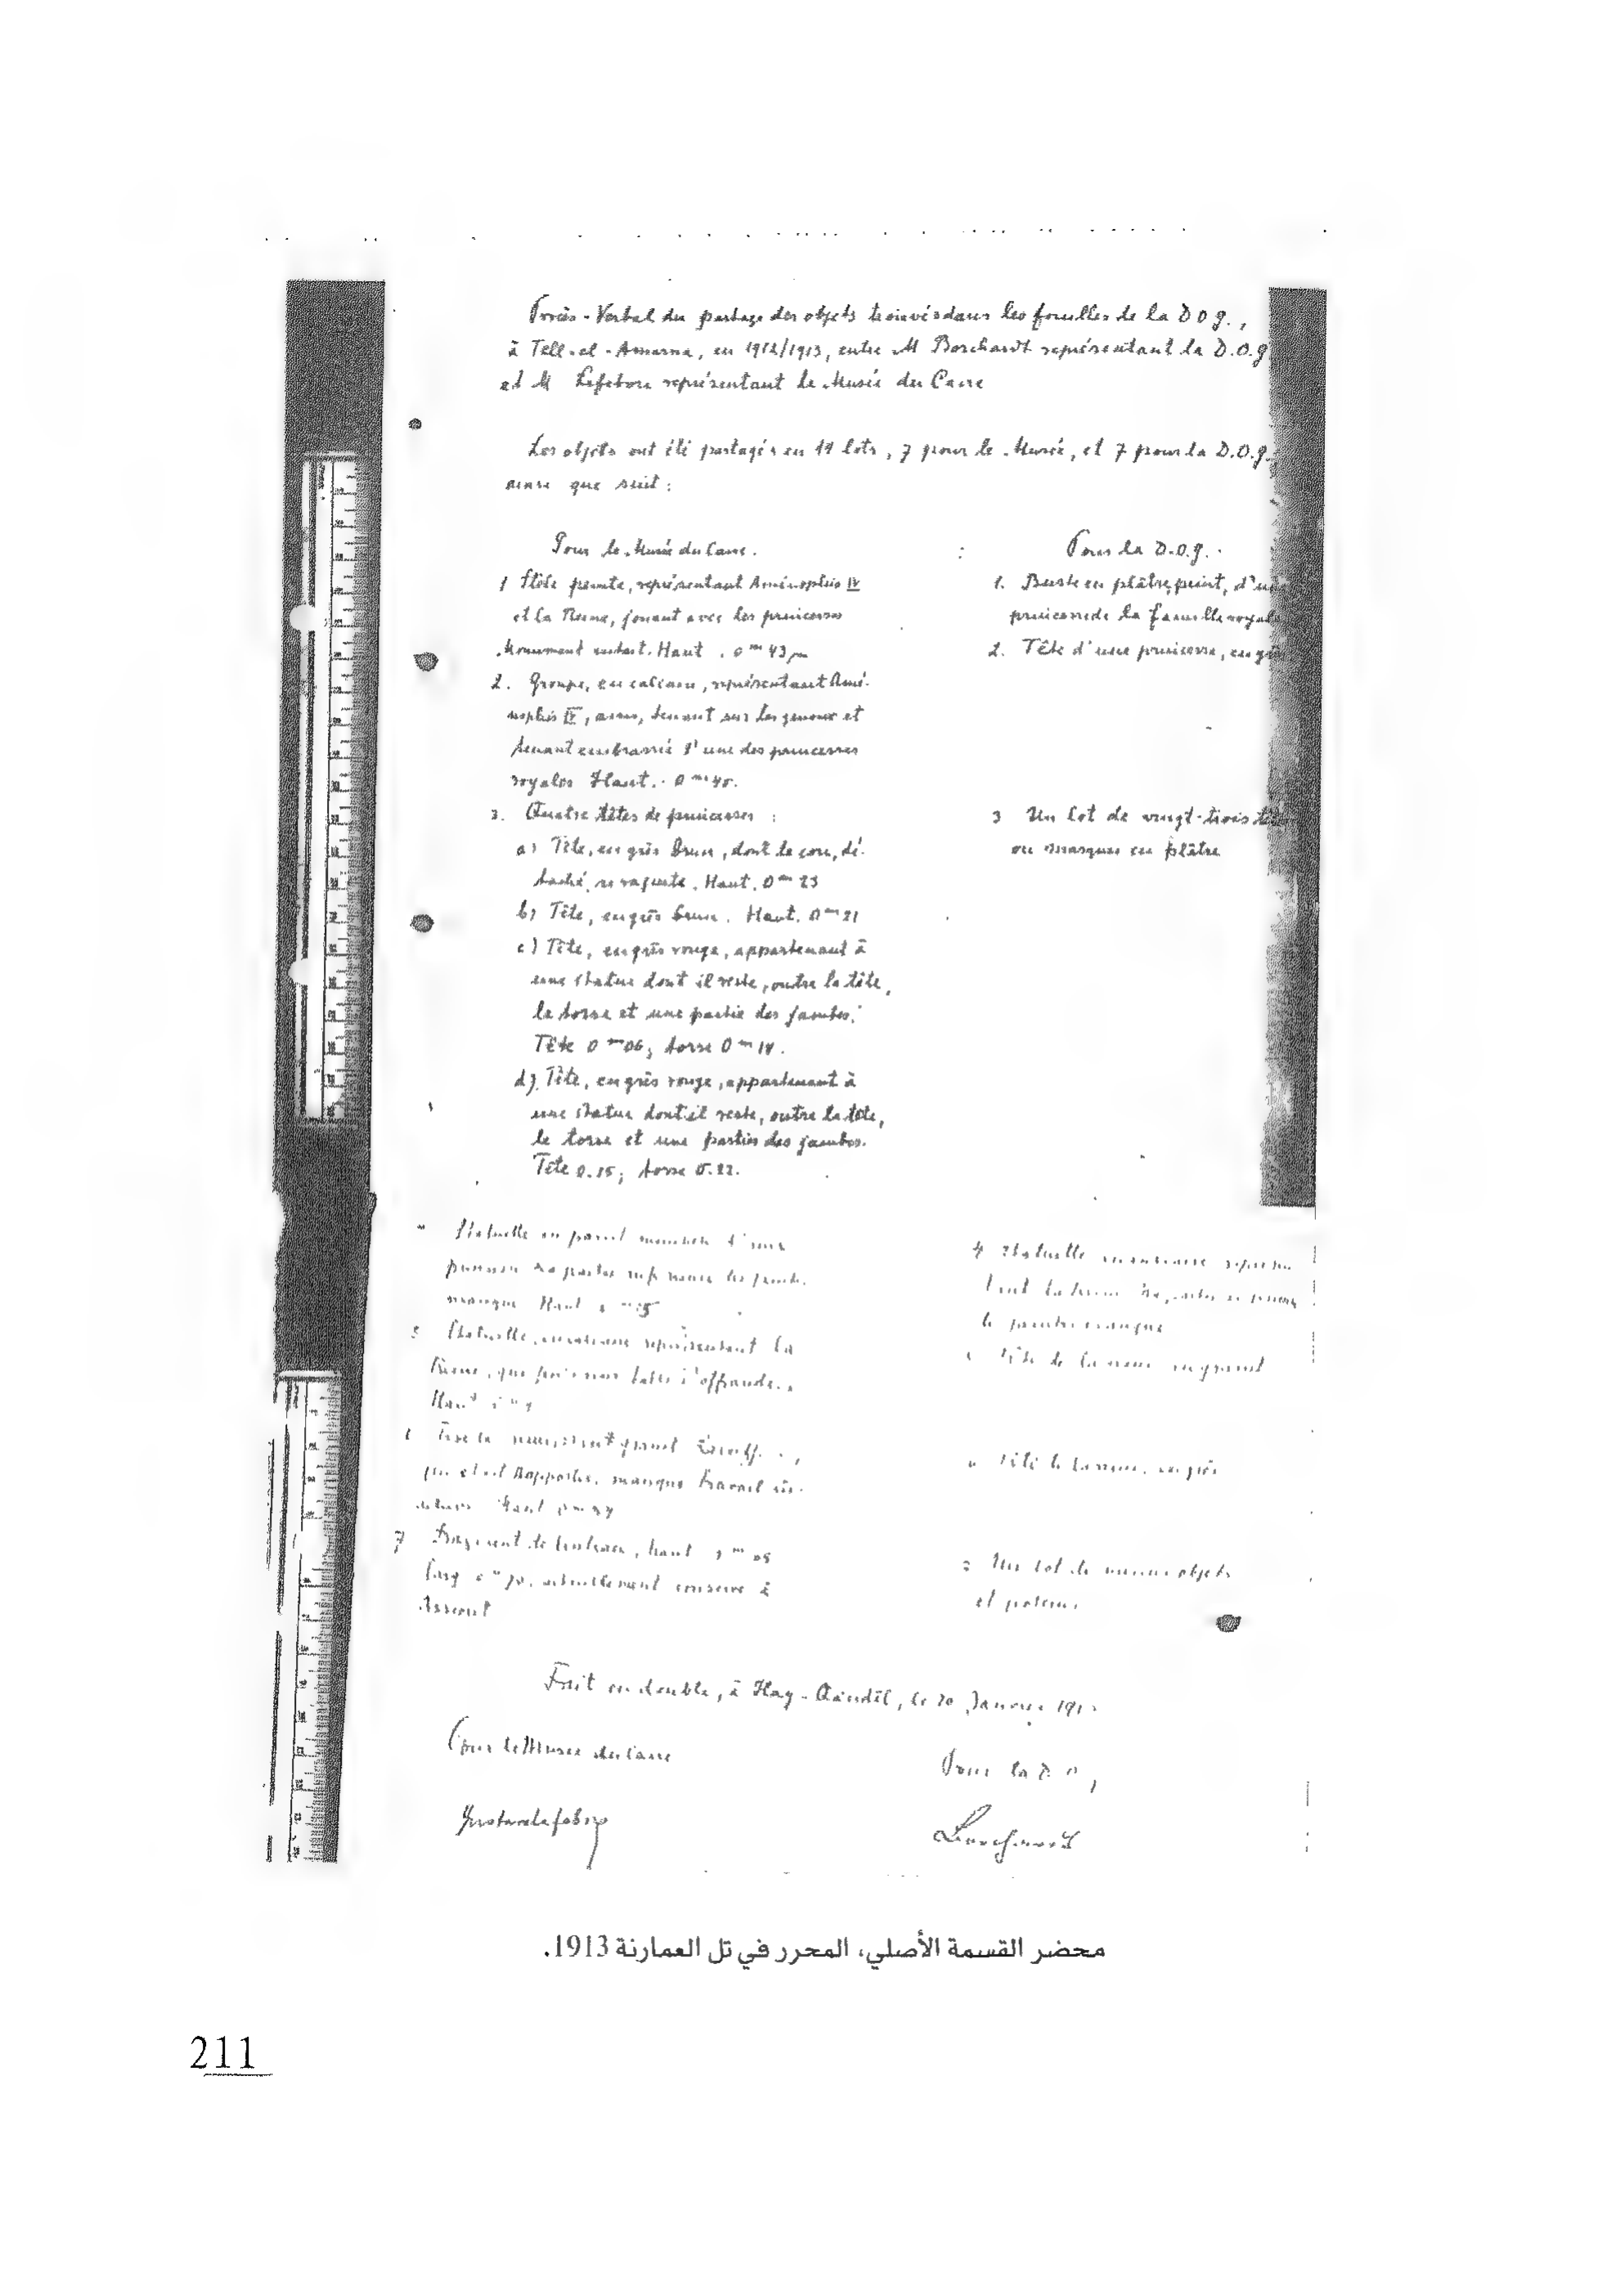 Procès-Verbal du partage des objets trouvés dans les fouilles de la D O G.,
à Tell-el-Amarna, en 1912/1913, entre M Borchardt représentant la D.O.G
et M Lefebvre représentant le Musée du Caire
Les objets ont été partagés en 14 lots, 7 pour le Musée, et 7 pour la D.O.G.
ainsi que suit :
Pour le Musée du Caire.
1 Stèle peinte, représentant Aménophis IV
et la Reine, jouant avec les princesses
Monument intact. Haut. 0 m 43
2. Groupe, en calcaire, représentant Amé-
nophis IV, assis, tenant sur les genoux et
tenant embrassée l'une des princesses
royales Haut. 0 m 40.
3. Quatre têtes de princesses :
a) Tête, en grès brun, dont le cou, dé-
taché, se rajuste. Haut. 0 m 23
b) Tête, en grès brun. Haut. 0 m 21
c) Tête, en grès rouge, appartenant à
une statue dont il reste, outre la tête,
le torse et une partie des jambes.
Tête 0 m 06; torse 0 m 14.
d) Tête, en grès rouge, appartenant à
une statue dont il reste, outre la tête,
le torse et une partie des jambes.
Tête 0.15; torse 0.22.
Statuette en
princesse
manque Haut
5 Statuette, représentant la
Reine, l'offrande.
Haut
manque travail
Haut
7 Fragment de linteau, haut
larg actuellement conservé à
Assiout
Pour la D.O.G.
1. Buste en plâtre, peint, d'une
princesse de la famille royale
2. Tête d'une princesse, en grès
3 Un lot de vingt-trois têtes
ou masques en plâtre
4 Statuette
les jambes manquent
Tête de la reine en granit
Tête de la reine, en grès
Un lot de menus objets
et poteries
Fait en double, à Hag-Qandîl, le 20 Janvier 191
Pour le Musée du Caire
Pour la D O
Gustave Lefebvre
Borchardt
محضر القسمة الأصلي، المحرر في تل العمارنة 1913.
211